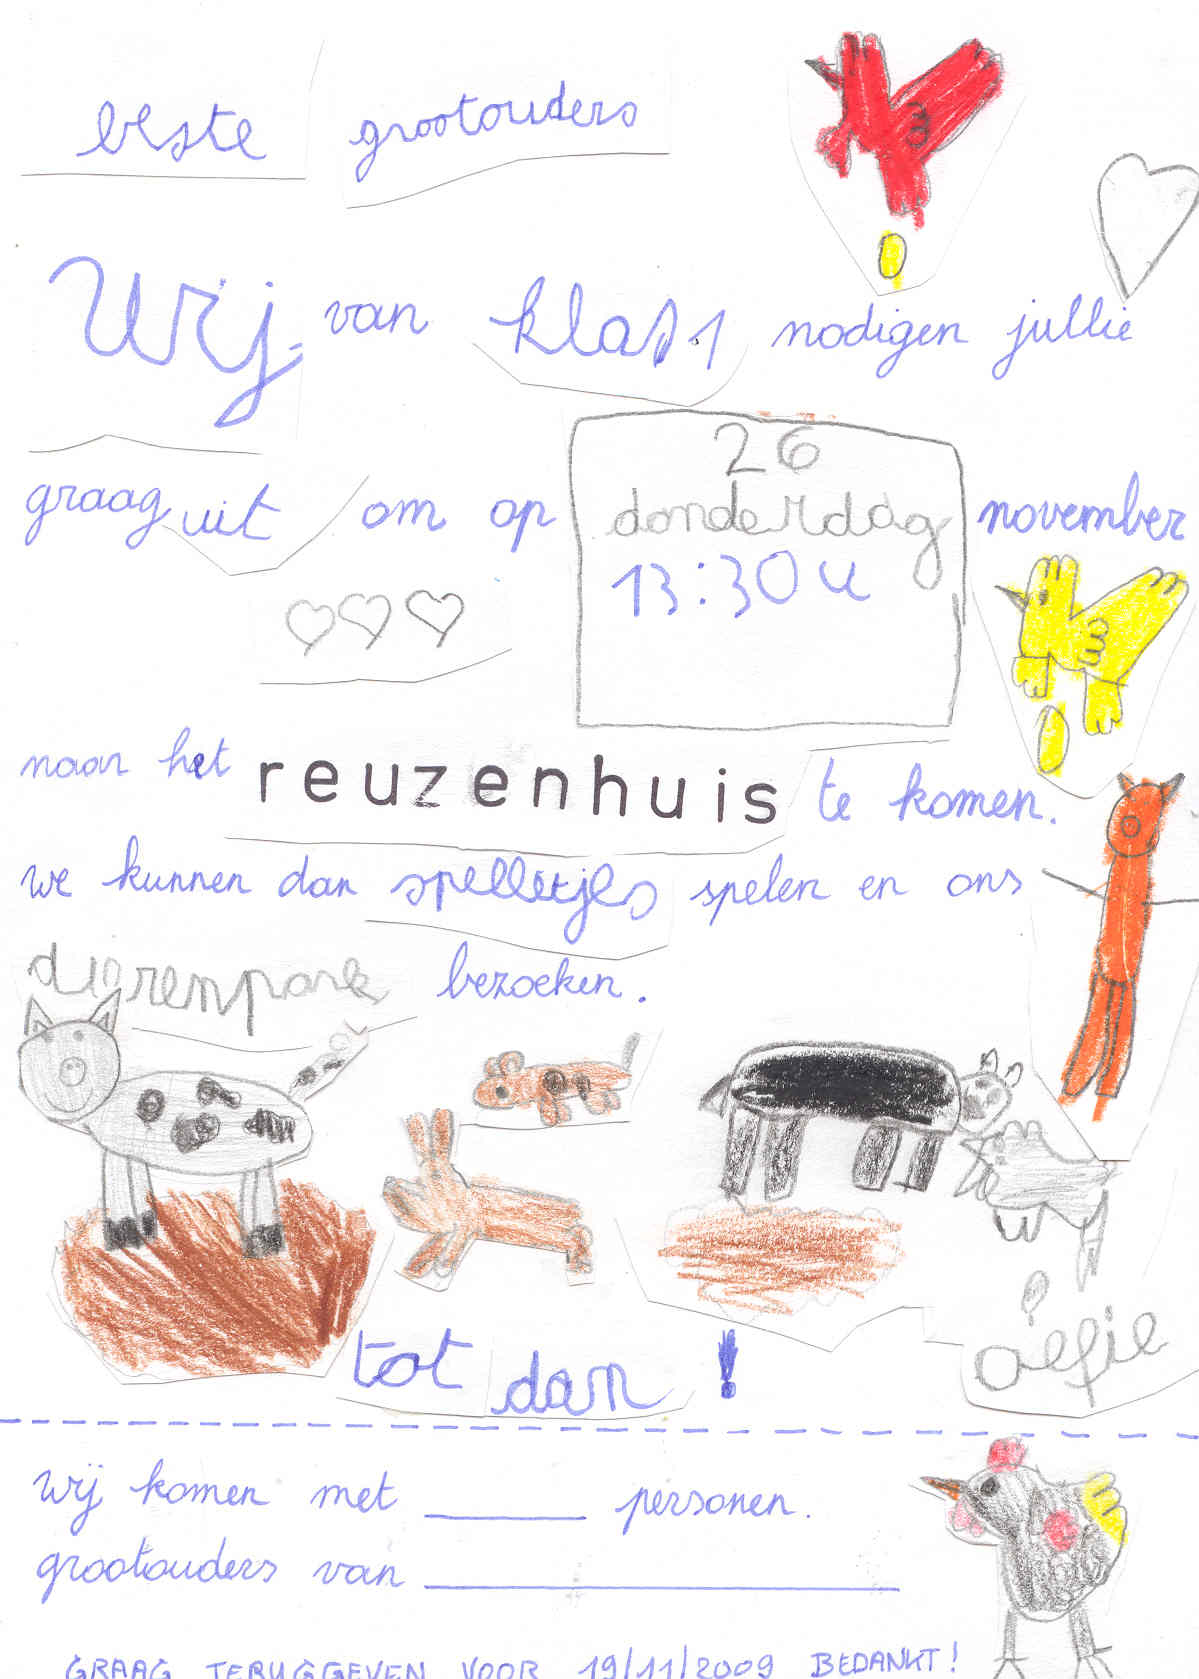 beste grootouders
Wij van klas 1 nodigen jullie
graag uit om op 26 donderdag november
13:30 u
naar het reuzenhuis te komen.
we kunnen dan spelletjes spelen en ons
dierenpark bezoeken.
oefie
tot dan !
wij komen met ______ personen.
grootouders van ______
GRAAG TERUGGEVEN VOOR 19/11/2009 BEDANKT!